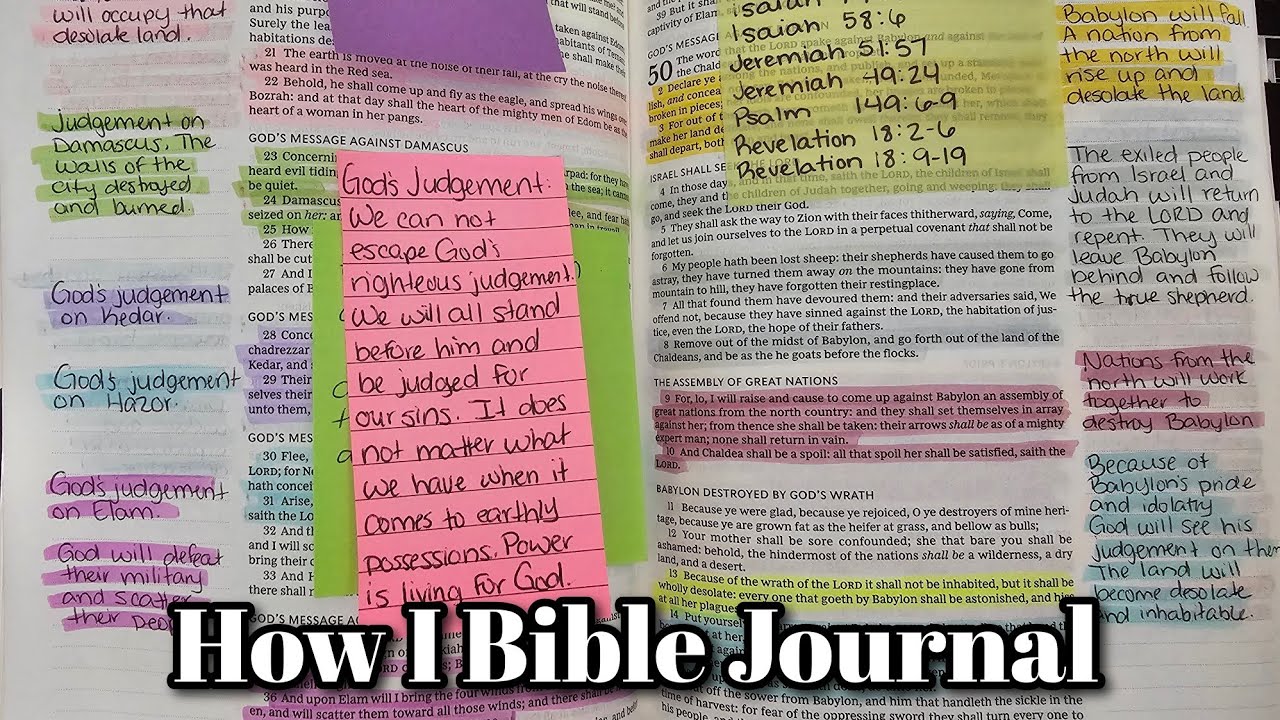 will occupy that
desolate land.
Judgement on
Damascus. The
walls of the
city destroyed
and burned.
God's judgement
on Kedar.
God's judgement
on Hazor.
God's judgement
on Elam.
God will defeat
their military
and scatter
their
and his
Surely the
habitations
taken against Edom
21 The earth is moved at the noise of their fall, at the cry the noise thereof
was heard in the Red sea.
22 Behold, he shall come up and fly as the eagle, and spread his wings over
Bozrah: and at that day shall the heart of the mighty men of Edom be as the
heart of a woman in her pangs.
GOD'S MESSAGE AGAINST DAMASCUS
23
heard evil
be quiet.
24
seized on her:
25 How
26
shall be
27 And I
palaces of
28
Kedar, and
29 Their
selves their
unto them,
30 Flee,
LORD; for
hath
31 Arise,
saith the
32 And
and I will
bring their
33 And
there shall
36 And upon Elam will I bring the four winds from
en, and will scatter them toward all those winds; and there shall be
God's Judgement:
We can not
escape God's
righteous judgement.
We will all stand
before him and
be judged for
our sins. It does
not matter what
we have when it
comes to earthly
possessions. Power
is living for God.
Isaiah
Isaiah 58:6
Jeremiah 51:57
Jeremiah 49:24
Psalm 149:6-9
Revelation 18:2-6
Revelation 18:9-19
39 But it shall
captivity of Elam,
GOD'S MESSAGE
50 The word
the
2 Declare ye
lish, and
broken in pieces;
3 For out of
make her land
shall depart, both
ISRAEL SHALL
4 In those days, and in that time, saith the LORD, the children of Israel shall
come, they and the children of Judah together, going and weeping: they shall
go, and seek the LORD their God.
5 They shall ask the way to Zion with their faces thitherward, saying, Come,
and let us join ourselves to the LORD in a perpetual covenant that shall not be
forgotten.
6 My people hath been lost sheep: their shepherds have caused them to go
astray, they have turned them away on the mountains: they have gone from
mountain to hill, they have forgotten their restingplace.
7 All that found them have devoured them: and their adversaries said, We
offend not, because they have sinned against the LORD, the habitation of jus-
tice, even the LORD, the hope of their fathers.
8 Remove out of the midst of Babylon, and go forth out of the land of the
Chaldeans, and be as the he goats before the flocks.
THE ASSEMBLY OF GREAT NATIONS
9 For, lo, I will raise and cause to come up against Babylon an assembly of
great nations from the north country: and they shall set themselves in array
against her; from thence she shall be taken: their arrows shall be as of a mighty
expert man; none shall return in vain.
10 And Chaldea shall be a spoil: all that spoil her shall be satisfied, saith the
LORD.
BABYLON DESTROYED BY GOD'S WRATH
11 Because ye were glad, because ye rejoiced, O ye destroyers of mine heri-
tage, because ye are grown fat as the heifer at grass, and bellow as bulls;
12 Your mother shall be sore confounded; she that bare you shall be
ashamed: behold, the hindermost of the nations shall be a wilderness, a dry
land, and a desert.
13 Because of the wrath of the LORD it shall not be inhabited, but it shall be
wholly desolate: every one that goeth by Babylon shall be astonished, and hiss
at all her plagues.
14 Put yourselves
off the sower from Babylon, and him that handleth the sickle in the
time of harvest: for fear of the oppressing sword they shall turn every one to
his people,
Babylon will fall.
A nation from
the north will
rise up and
desolate the land.
The exiled people
from Israel and
Judah will return
to the LORD and
repent. They will
leave Babylon
behind and follow
the true shepherd.
Nations from the
north will work
together to
destroy Babylon
Because of
Babylon's pride
and idolatry
God will see his
judgement on
The land will
become desolate
and inhabitable.
How I Bible Journal